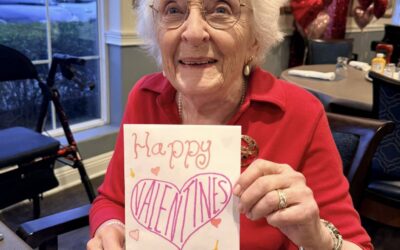 Happy
VALENTINES